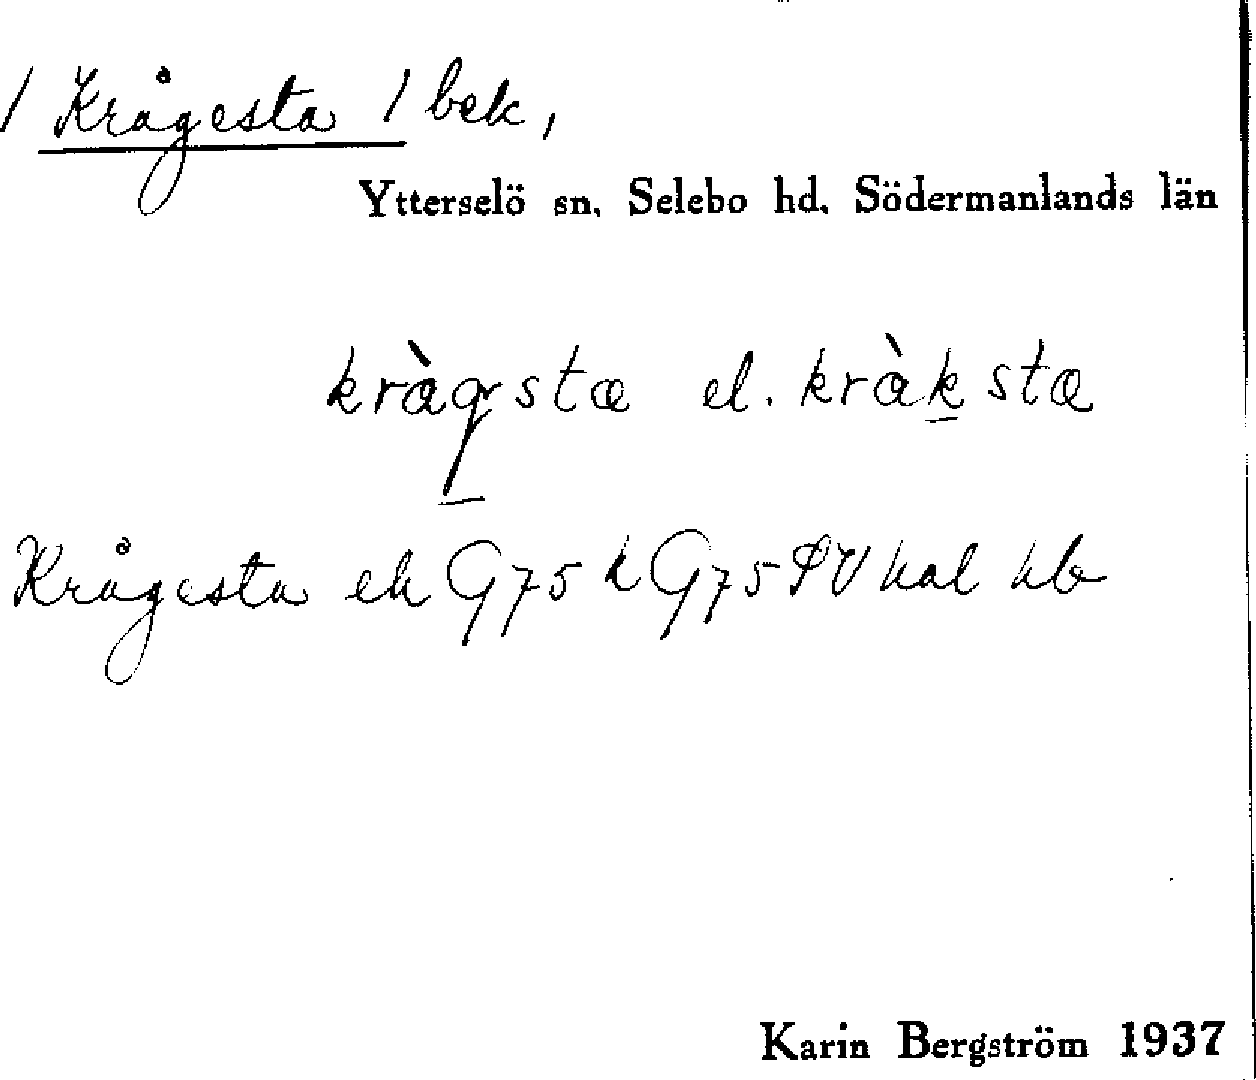 / Krågesta / bek,
Ytterselö sn. Selebo hd. Södermanlands län
kràgsta el. kràksta
Krågesta ek G75 k G75 PV kal kb
Karin Bergström 1937